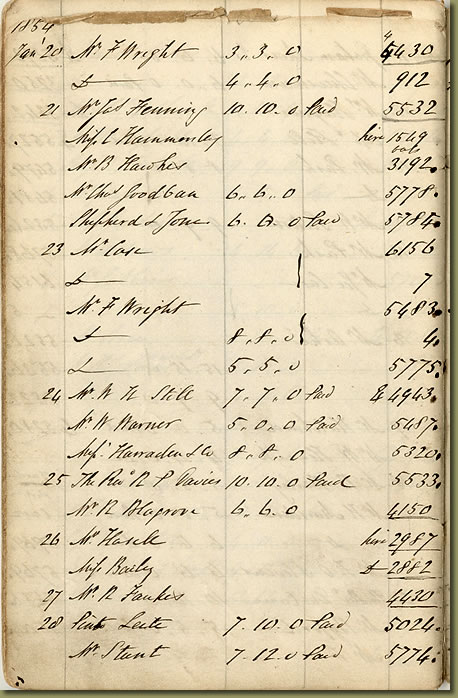 1854
Jan 20 Mr F Wright 3.. 3.. 0 5430
Do 4.. 4.. 0 912
21 Mr Jas Fenning 10.. 10.. 0 Paid 5532
Miss C Hammersley hire 1549
Mr B Hawkes 3192.
Mr Chas Goodban 6.. 6.. 0 5778.
Shepherd & Jones 6. 0. 0 Paid 5784.
23 Mr Case 6156
Do 7
Mr F Wright 5483.
Do 8.. 8.. 0 4.
Do 5.. 5.. 0 5775.
24 Mr W H Still 7.. 7.. 0 Paid & 4943.
Mr W Warner 5.. 0.. 0 Paid 5487.
Messrs Harraden & Co 8.. 8.. 0 5320.
25 The Revd R P Davies 10.. 10.. 0 Paid 5533.
Mr R Blagrove 6.. 6.. 0 4150
26 Mr Hasell hire 2987
Miss Bailey Do 2882
27 Mr R Faukes 4430
28 7.. 10. 0 Paid 5024.
Mr Stunt 7.. 12. 0 Paid 5774.